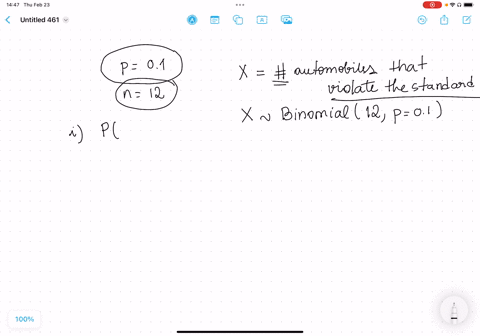 14:47 Thu Feb 23
Untitled 461
p = 0.1
n = 12
X = # automobiles that
violate the standard
X ~ Binomial ( 12, p = 0.1 )
i) P(
100%